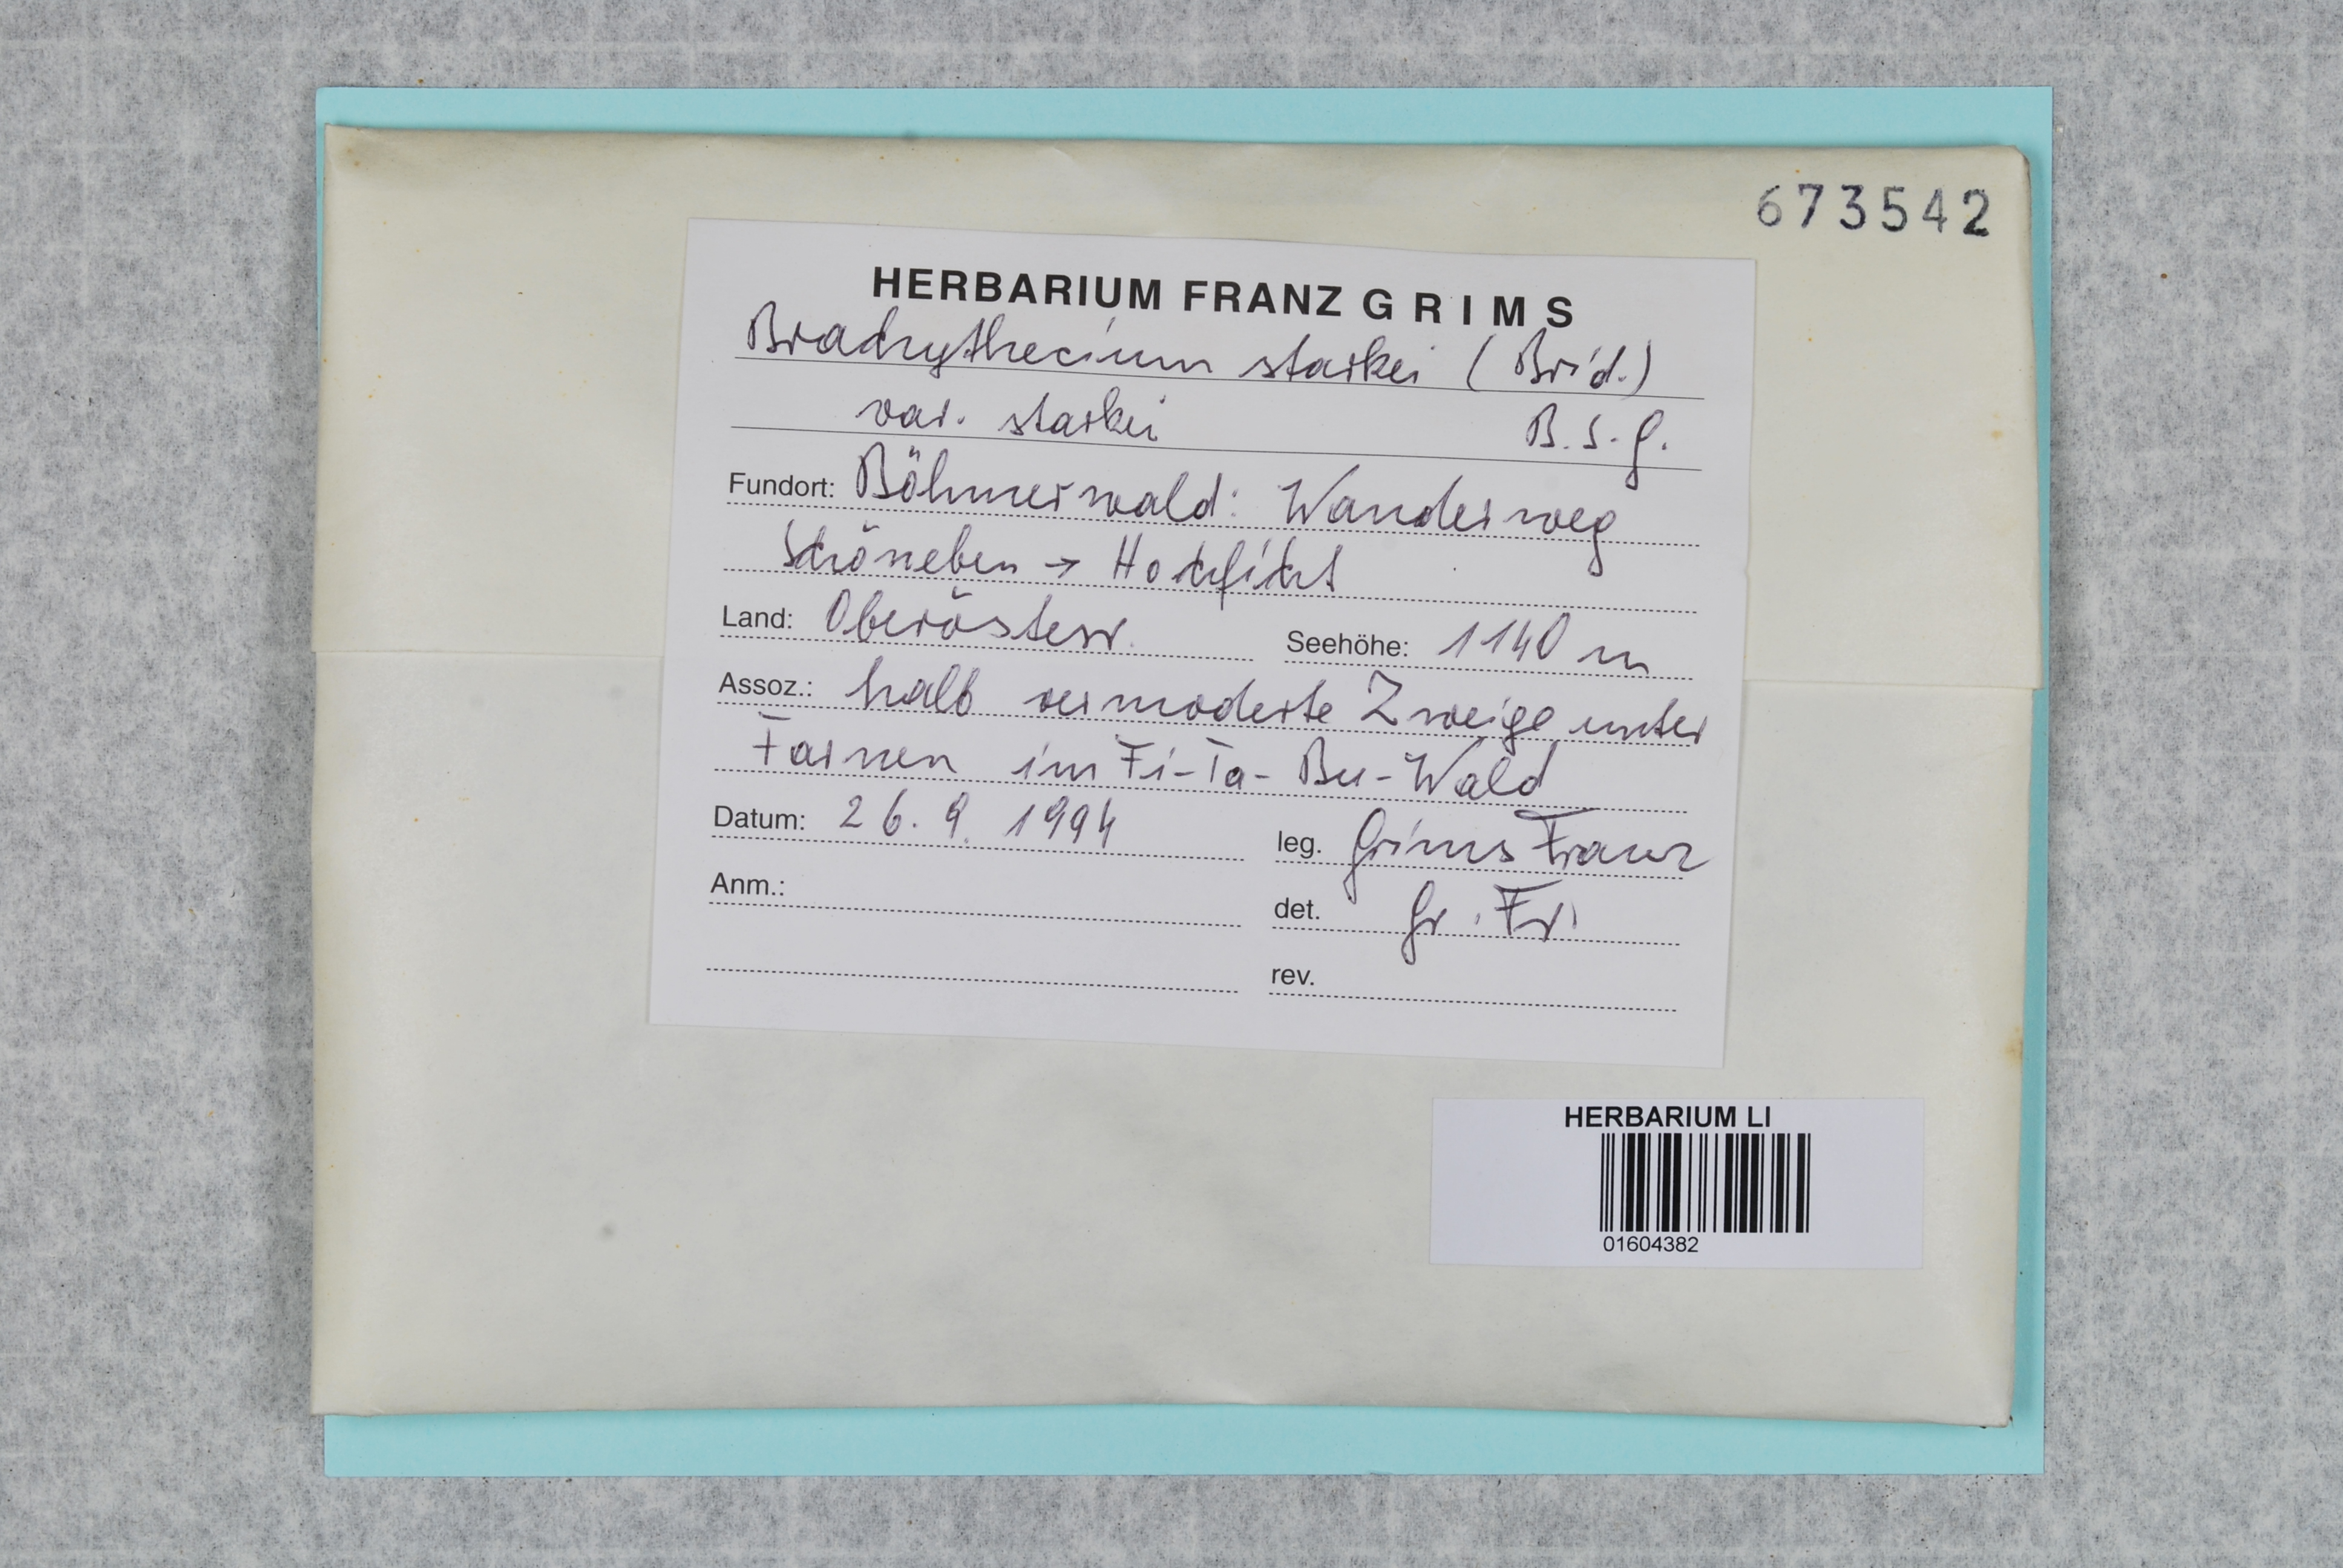 673542
HERBARIUM FRANZ GRIMS
Brachythecium starkei (Brid.)
var. starkei B.S.G.
Fundort: Böhmerwald: Wanderweg
Schöneben → Hochficht
Land: Oberösterr. Seehöhe: 1140 m
Assoz.: halb vermoderte Zweige unter
Farnen im Fi-Ta-Bu-Wald
Datum: 26. 9. 1994 leg. Grims Franz
Anm.: det. Gr. Fr.
rev.
HERBARIUM LI
01604382